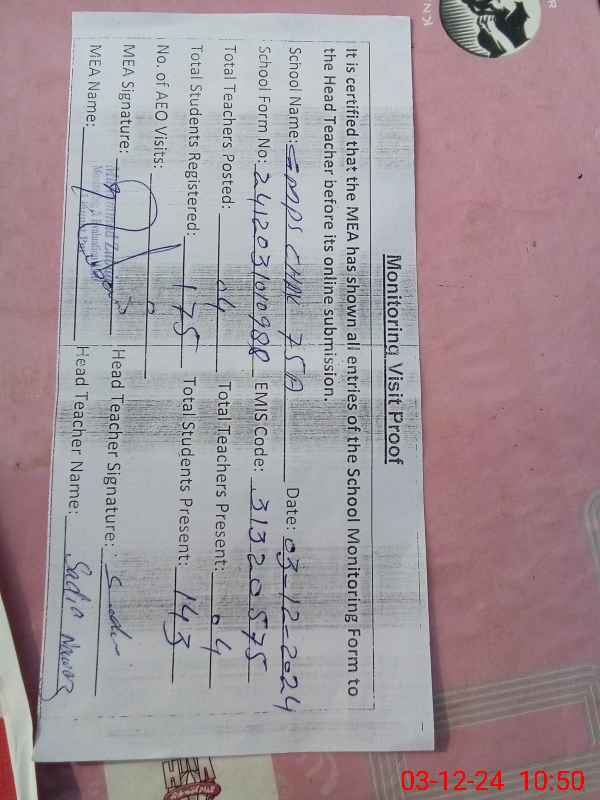 Monitoring Visit Proof
It is certified that the MEA has shown all entries of the School Monitoring Form to
the Head Teacher before its online submission.
School Name: GMPS CHAK 75A Date: 03-12-2024
School Form No: EMIS Code: 31320575
Total Teachers Posted: 04 Total Teachers Present: 04
Total Students Registered: 175 Total Students Present: 143
No. of AEO Visits: 0
MEA Signature: Head Teacher Signature:
MEA Name: Head Teacher Name: Sadia Nawaz
03-12-24 10:50